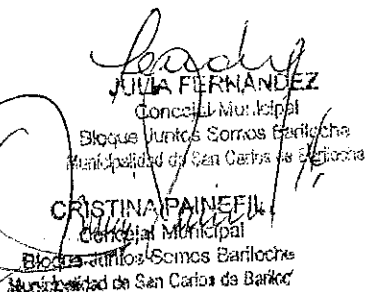 JULIA FERNANDEZ
Concejal Municipal
Bloque Juntos Somos Bariloche
Municipalidad de San Carlos de Bariloche
CRISTINA PAINEFIL
Concejal Municipal
Bloque Juntos Somos Bariloche
Municipalidad de San Carlos de Bariloc